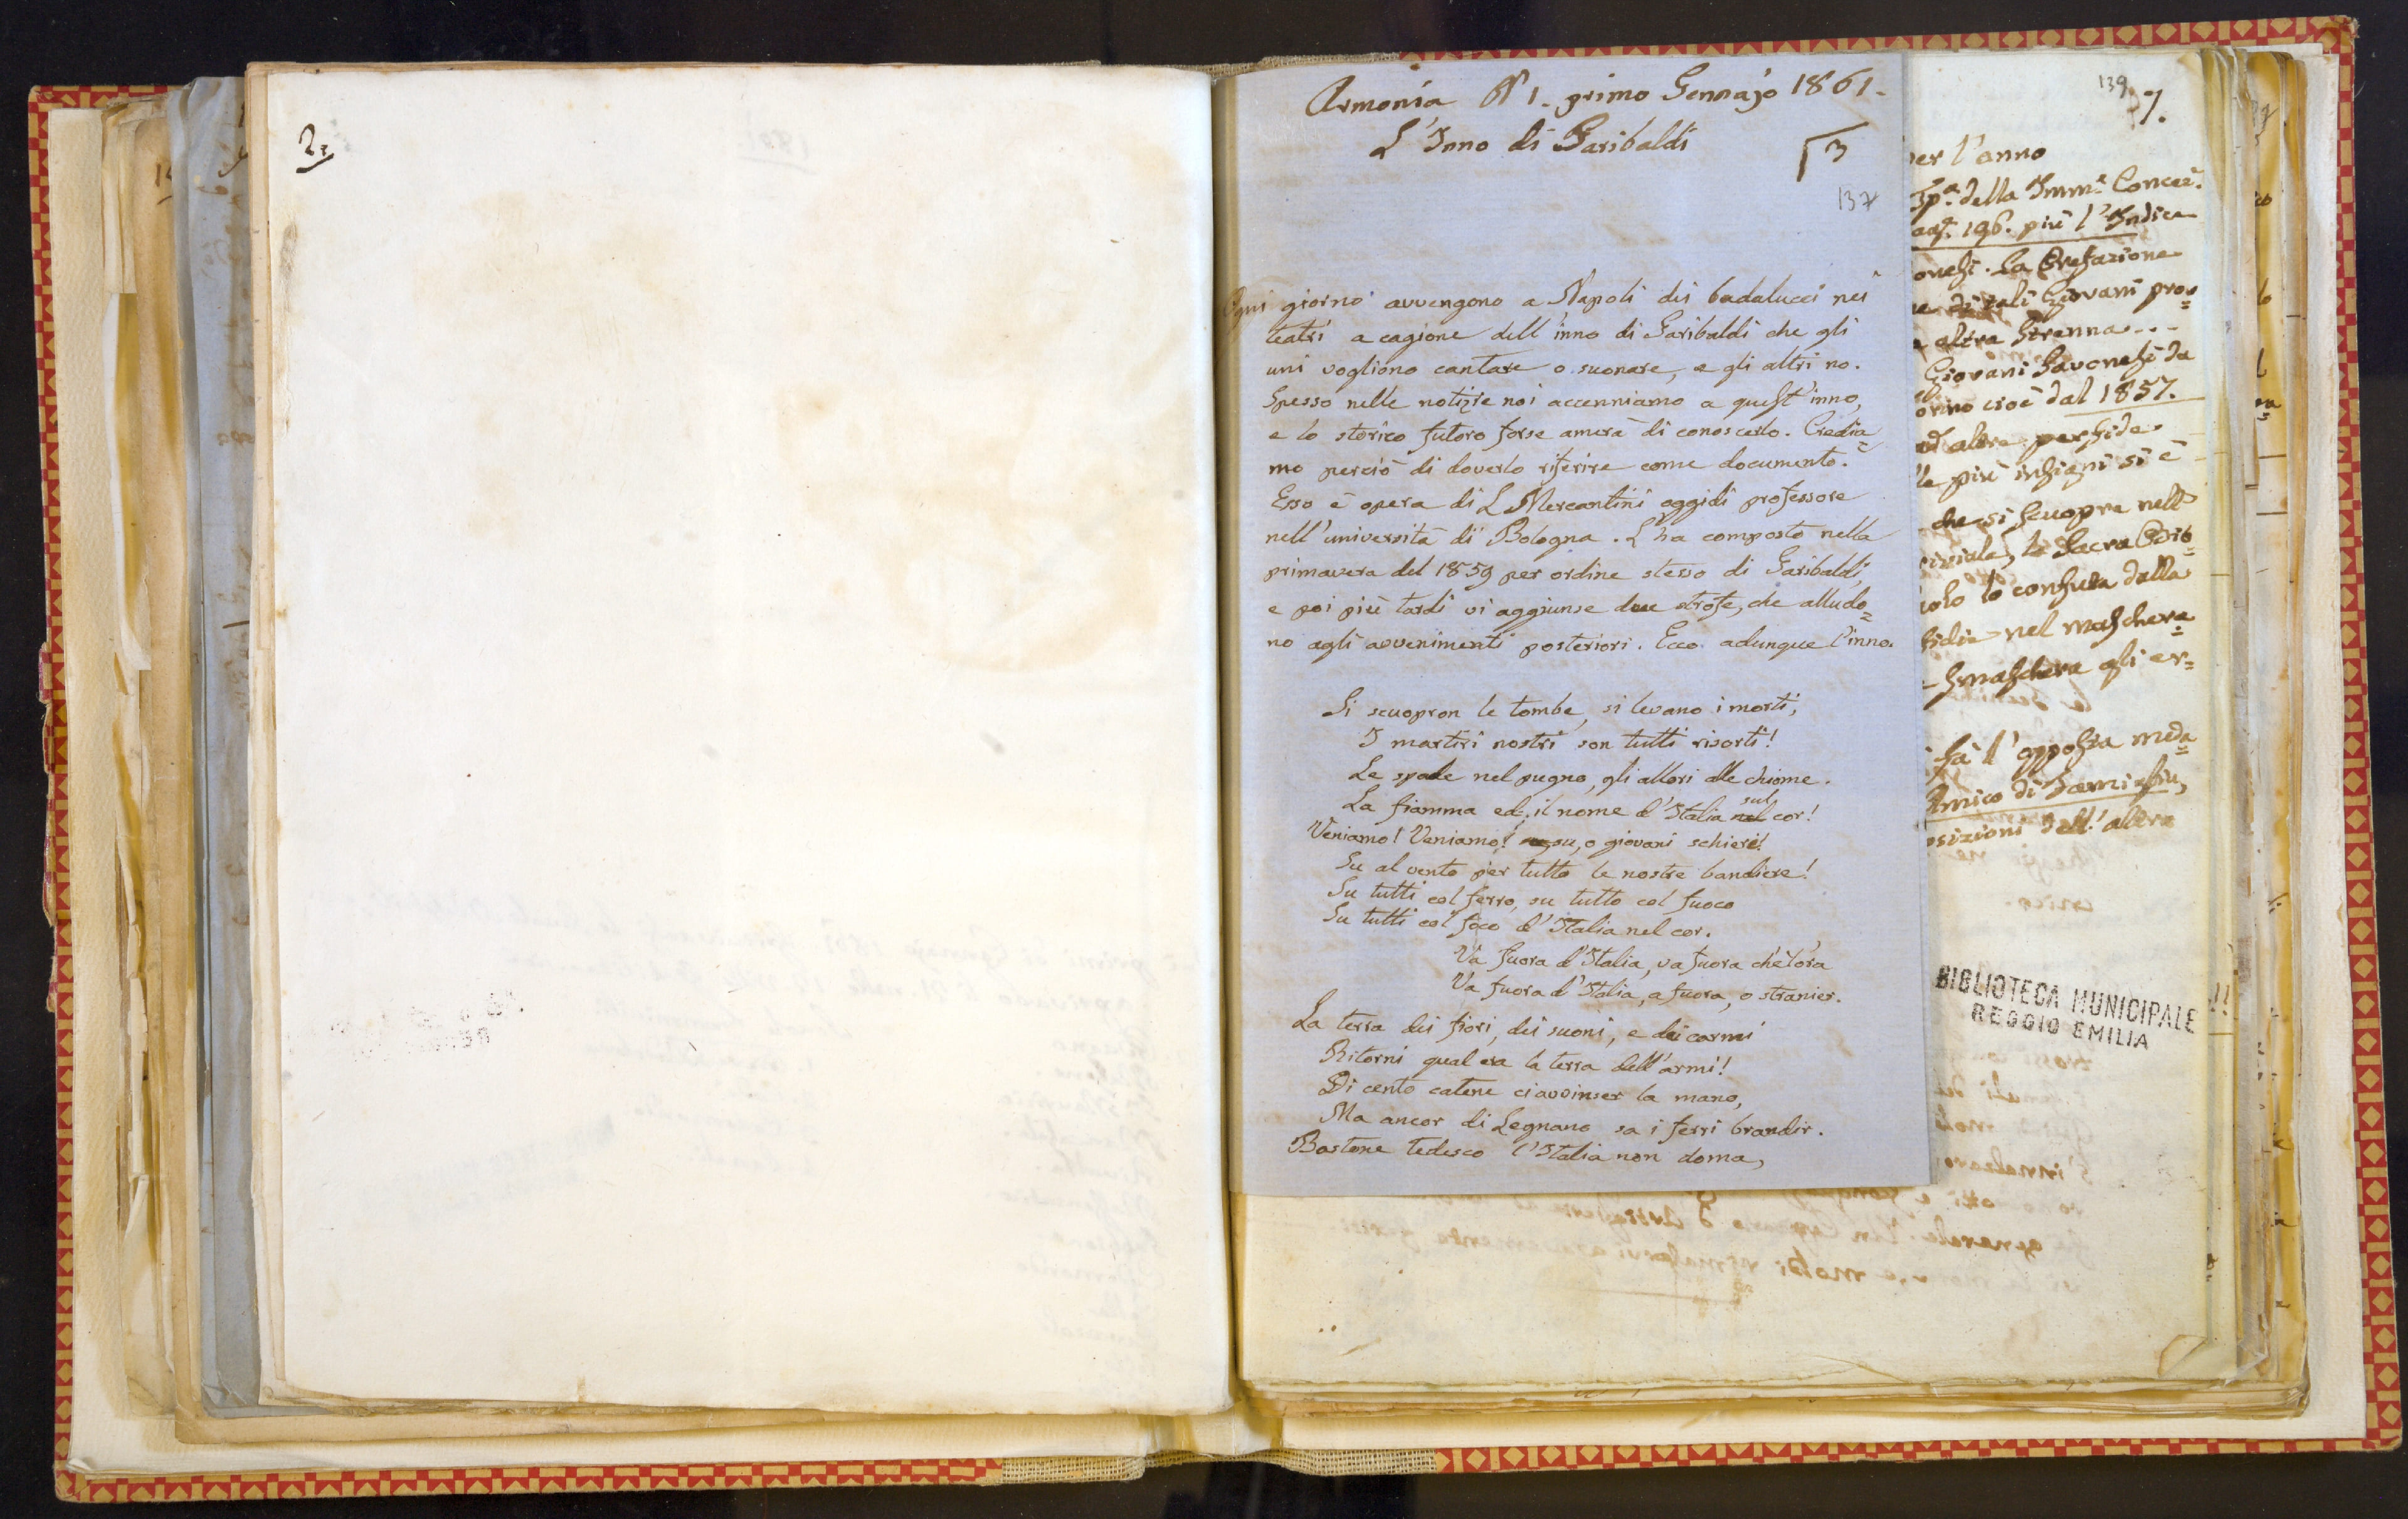 2
Armonia N 1. primo Gennajo 1861.
L'Inno di Garibaldi
3
137
Ogni giorno avvengono a Napoli dei badalucci nei
teatri a cagione dell'inno di Garibaldi che gli
uni vogliono cantare o suonare, e gli altri no.
Spesso nelle notizie noi accenniamo a quest'inno,
e lo storico futuro forse amerà di conoscerlo. Credia=
mo perciò di doverlo riferire come documento.
Esso è opera di L Mercantini oggidì professore
nell'università di Bologna. L'ha composto nella
primavera del 1859 per ordine stesso di Garibaldi,
e poi più tardi vi aggiunse due strofe, che alludo=
no agli avvenimenti posteriori. Ecco adunque l'inno.
Si scuopron le tombe, si levano i morti,
I martiri nostri son tutti risorti!
Le spade nel pugno, gli allori alle chiome.
La fiamma ed il nome d'Italia nel sul cor!
Veniamo! Veniamo! su, o giovani schiere!
Su al vento per tutto le nostre bandiere!
Su tutti col ferro, su tutto col fuoco
Su tutti col foco d'Italia nel cor.
Va fuora d'Italia, va fuora ch'è l'ora
Va fuora d'Italia, a fuora, o stranier.
La terra dei fiori, dei suoni, e dei carmi
Ritorni qual era la terra dell'armi!
Di cento catene ci avvinser la mano,
Ma ancor di Legnano sa i ferri brandir.
Bastone tedesco l'Italia non doma,
139
7.
per l'anno
della Imm.ª Concez.
196. più l'Indice
La Prefazione
Giovani pro=
altra Strenna - - -
Giovani Savonesi da
cioè dal 1857.
altre perfide
le più insigni si è
che si scuopre nell
la Sacra
lo confuta dalla
nel maschera=
smaschera gli er=
fa l'opposta meda=
Amico di
dell'altra
BIBLIOTECA MUNICIPALE
REGGIO EMILIA